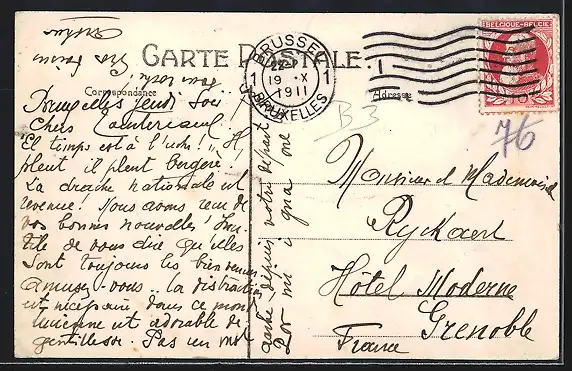 CARTE POSTALE.
BRUSSEL
1 19 X 1
1911
BRUXELLES
BELGIQUE-BELGIE
Correspondance
Adresse
Bruxelles Jeudi Soir
Chers
Et temps est à l'
pleut il pleut bergère!
La drache nationale est
revenue! Nous avons reçu de
vos bonnes nouvelles! Inu-
tile de vous dire qu'elles
sont toujours les bienvenues
Amusez-vous.. la distraction
est nécessaire dans ce monde
Lucienne est adorable de
gentillesse. Pas un mot
depuis votre départ
B3
76
Monsieur et Mademoiselle
Ryckaert
Hôtel Moderne
Grenoble
France